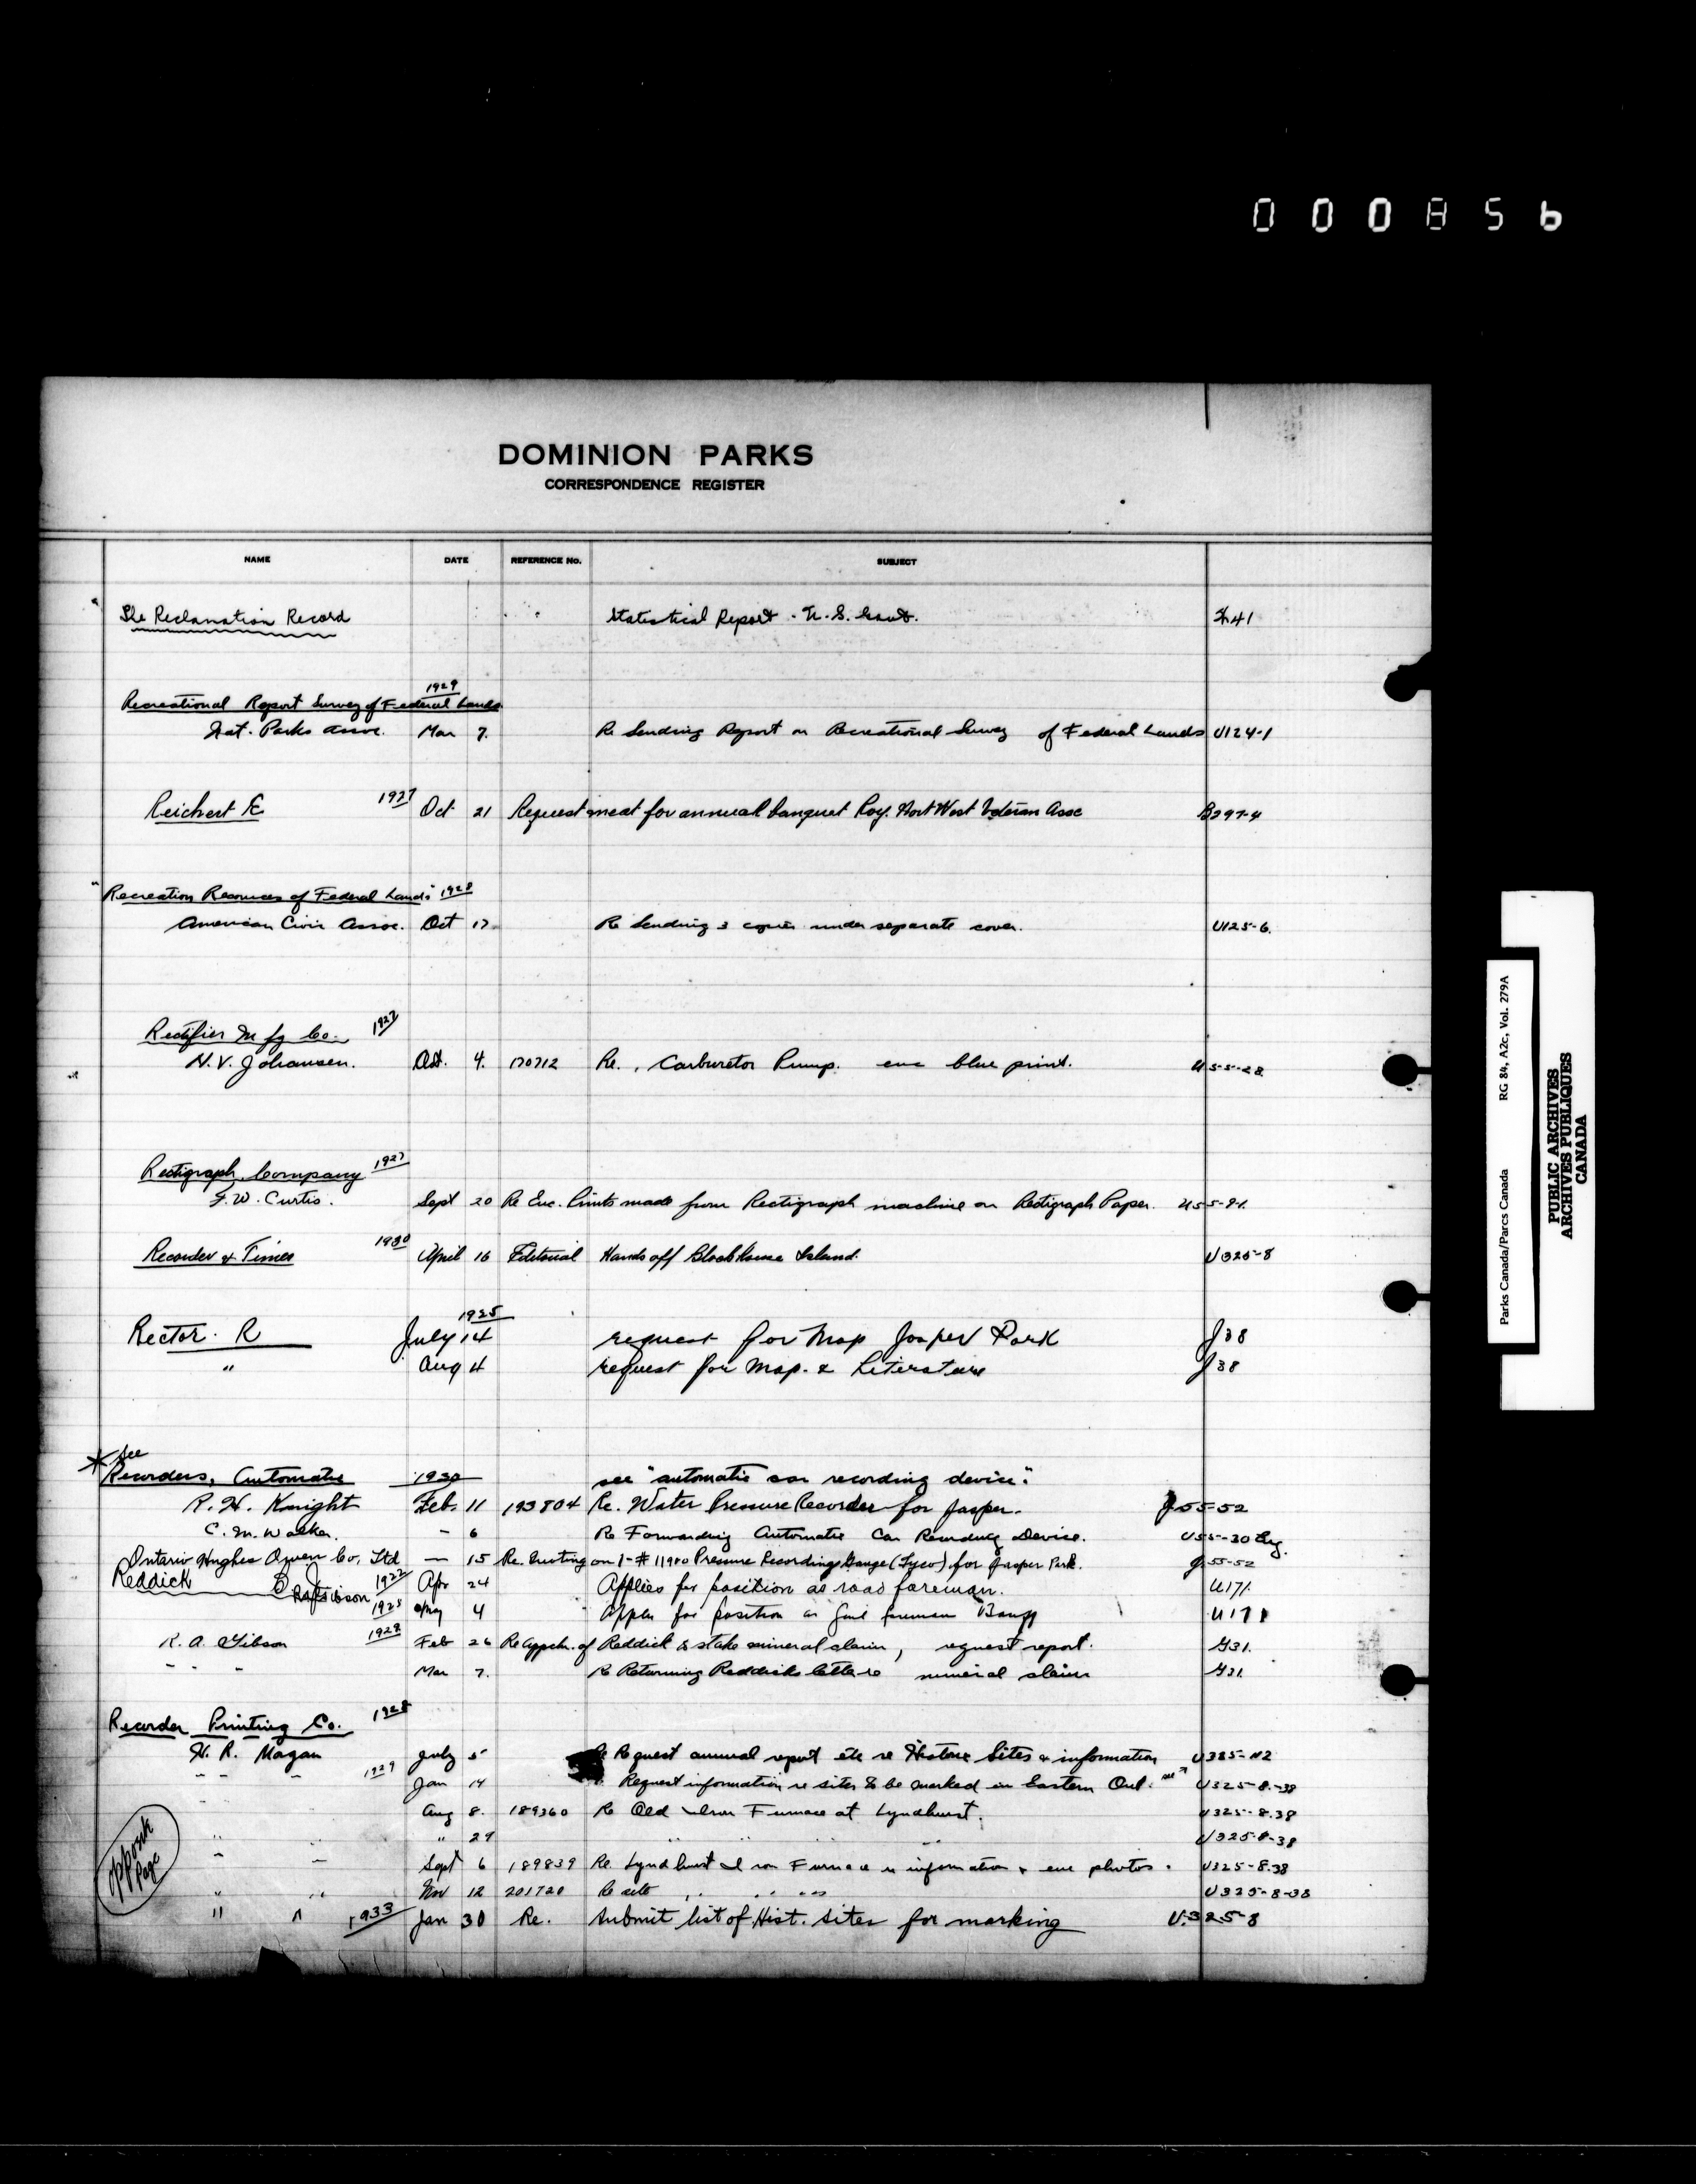 000856
DOMINION PARKS
CORRESPONDENCE REGISTER
NAME DATE REFERENCE No. SUBJECT
The Reclamation Record Statistical Report - U.S. Govt. 41
1929
Recreational Report Survey of Federal Lands
Nat. Parks Assoc. Mar 7. Re Sending Report on Recreational Survey of Federal Lands U124-1
Reichert E 1927 Oct 21 Request meat for annual banquet Roy. Nort West Veteran Assc B297-4
"Recreation Resources of Federal Lands" 1928
American Civic Assoc. Oct 17 Re Sending 3 copies under separate cover. U125-6.
Rectifier Mfg Co. 1927
N.V. Johansen. Oct. 4. 170712 Re., Carburetor Pump. enc blue print. U55-28
Rectigraph Company 1927
F.W. Curtis. Sept 20 Re Enc. Prints made from Rectigraph machine on Rectigraph Paper. U55-91.
Recorder & Times 1930 April 16 Editorial Hands off Block house Island. U325-8
1925
Rector. R July 14 request for Map Jasper Park J38
" Aug 4 request for Map. & Literature J38
* See
Recorders, Automatic 1930 see "automatic car recording device".
R. H. Knight Feb. 11 193804 Re. Water Pressure Recorder for Jasper. J55-52
C. M. Walker. - 6 Re Forwarding Automatic Car Recording Device. U55-30 Eng.
Ontario Hughes Owen Co, Ltd — 15 Re. on 1-# 11980 Pressure Recording Gauge (Tyco) for Jasper Park. J55-52
Reddick E J 1922 Apr 24 Applies for position as road foreman. U171.
RA Gibson 1925 May 4 Applen for position as foreman Banff U171
R. A. Gibson 1928 Feb 26 Re Appcln. of Reddick to stake mineral claim, request report. G31.
- - - Mar 7. Re Returning Reddicks letter re mineral claim G31.
Recorder Printing Co. 1928
H. R. Mogan July 5 Re Request annual report etc re Historic Sites & information U325-112
- - - 1929 Jan 14 Request information re sites to be marked in Eastern Ont. U325-8-38
Aug 8. 189360 Re Old Iron Furnace at Lyndhurst. U325-8.38
" " " 29 " " " " U325-8-38
" - Sept 6 189839 Re. Lyndhurst Iron Furnace re information & enc photos. U325-8.38
" " Nov 12 201720 Re site " " " U325-8-38
" " 1933 Jan 30 Re. Submit list of Hist. Sites for marking U.325-8
opposite
Page
Parks Canada/Parcs Canada RG 84, A2c, Vol. 279A
PUBLIC ARCHIVES
ARCHIVES PUBLIQUES
CANADA